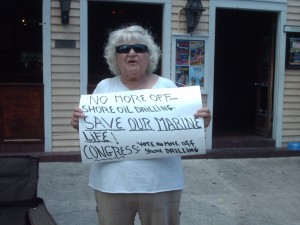 NO MORE OFF-
SHORE OIL DRILLING.
SAVE OUR MARINE
LIFE!
CONGRESS: VOTE NO MORE OFF
SHORE DRILLING